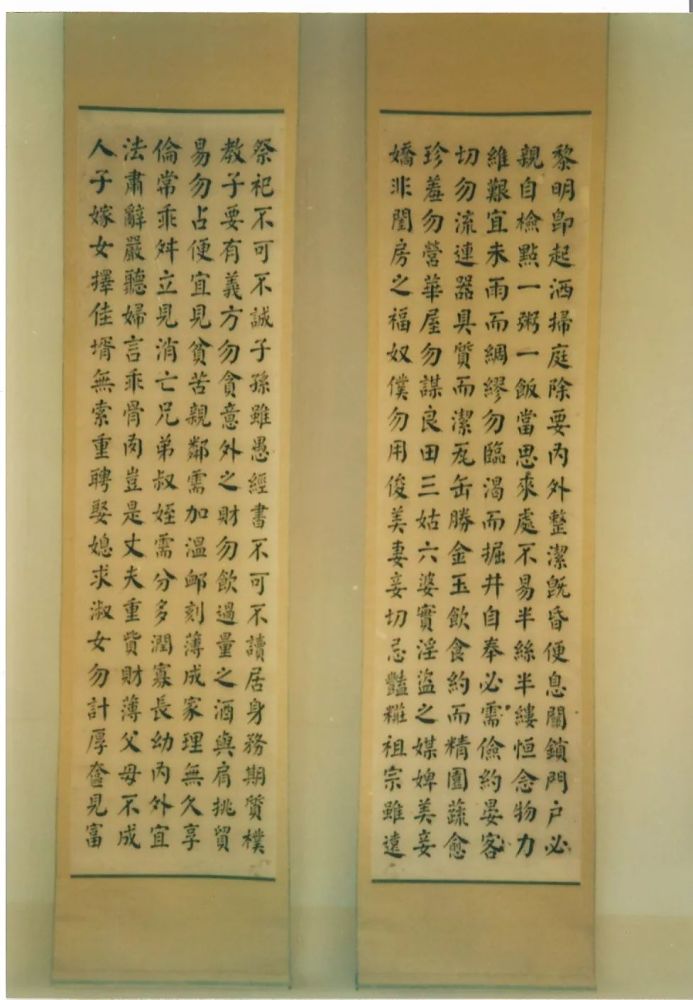 黎明即起洒掃庭除要內外整潔既昏便息關鎖門戶必
親自檢點一粥一飯當思來處不易半絲半縷恒念物力
維艱宜未雨而綢繆勿臨渴而掘井自奉必需儉約晏客
切勿流連器具質而潔瓦缶勝金玉飲食約而精園蔬愈
珍羞勿營華屋勿謀良田三姑六婆實淫盜之媒婢美妾
嬌非閨房之福奴僕勿用俊美妻妾切忌豔糚祖宗雖遠
祭祀不可不誠子孫雖愚經書不可不讀居身務期質樸
教子要有義方勿貪意外之財勿飲過量之酒與肩挑貿
易勿占便宜見貧苦親鄰需加溫卹刻薄成家理無久享
倫常乖舛立見消亡兄弟叔姪需分多潤寡長幼內外宜
法肅辭嚴聽婦言乖骨肉豈是丈夫重貲財薄父母不成
人子嫁女擇佳壻無索重聘娶媳求淑女勿計厚奩見富